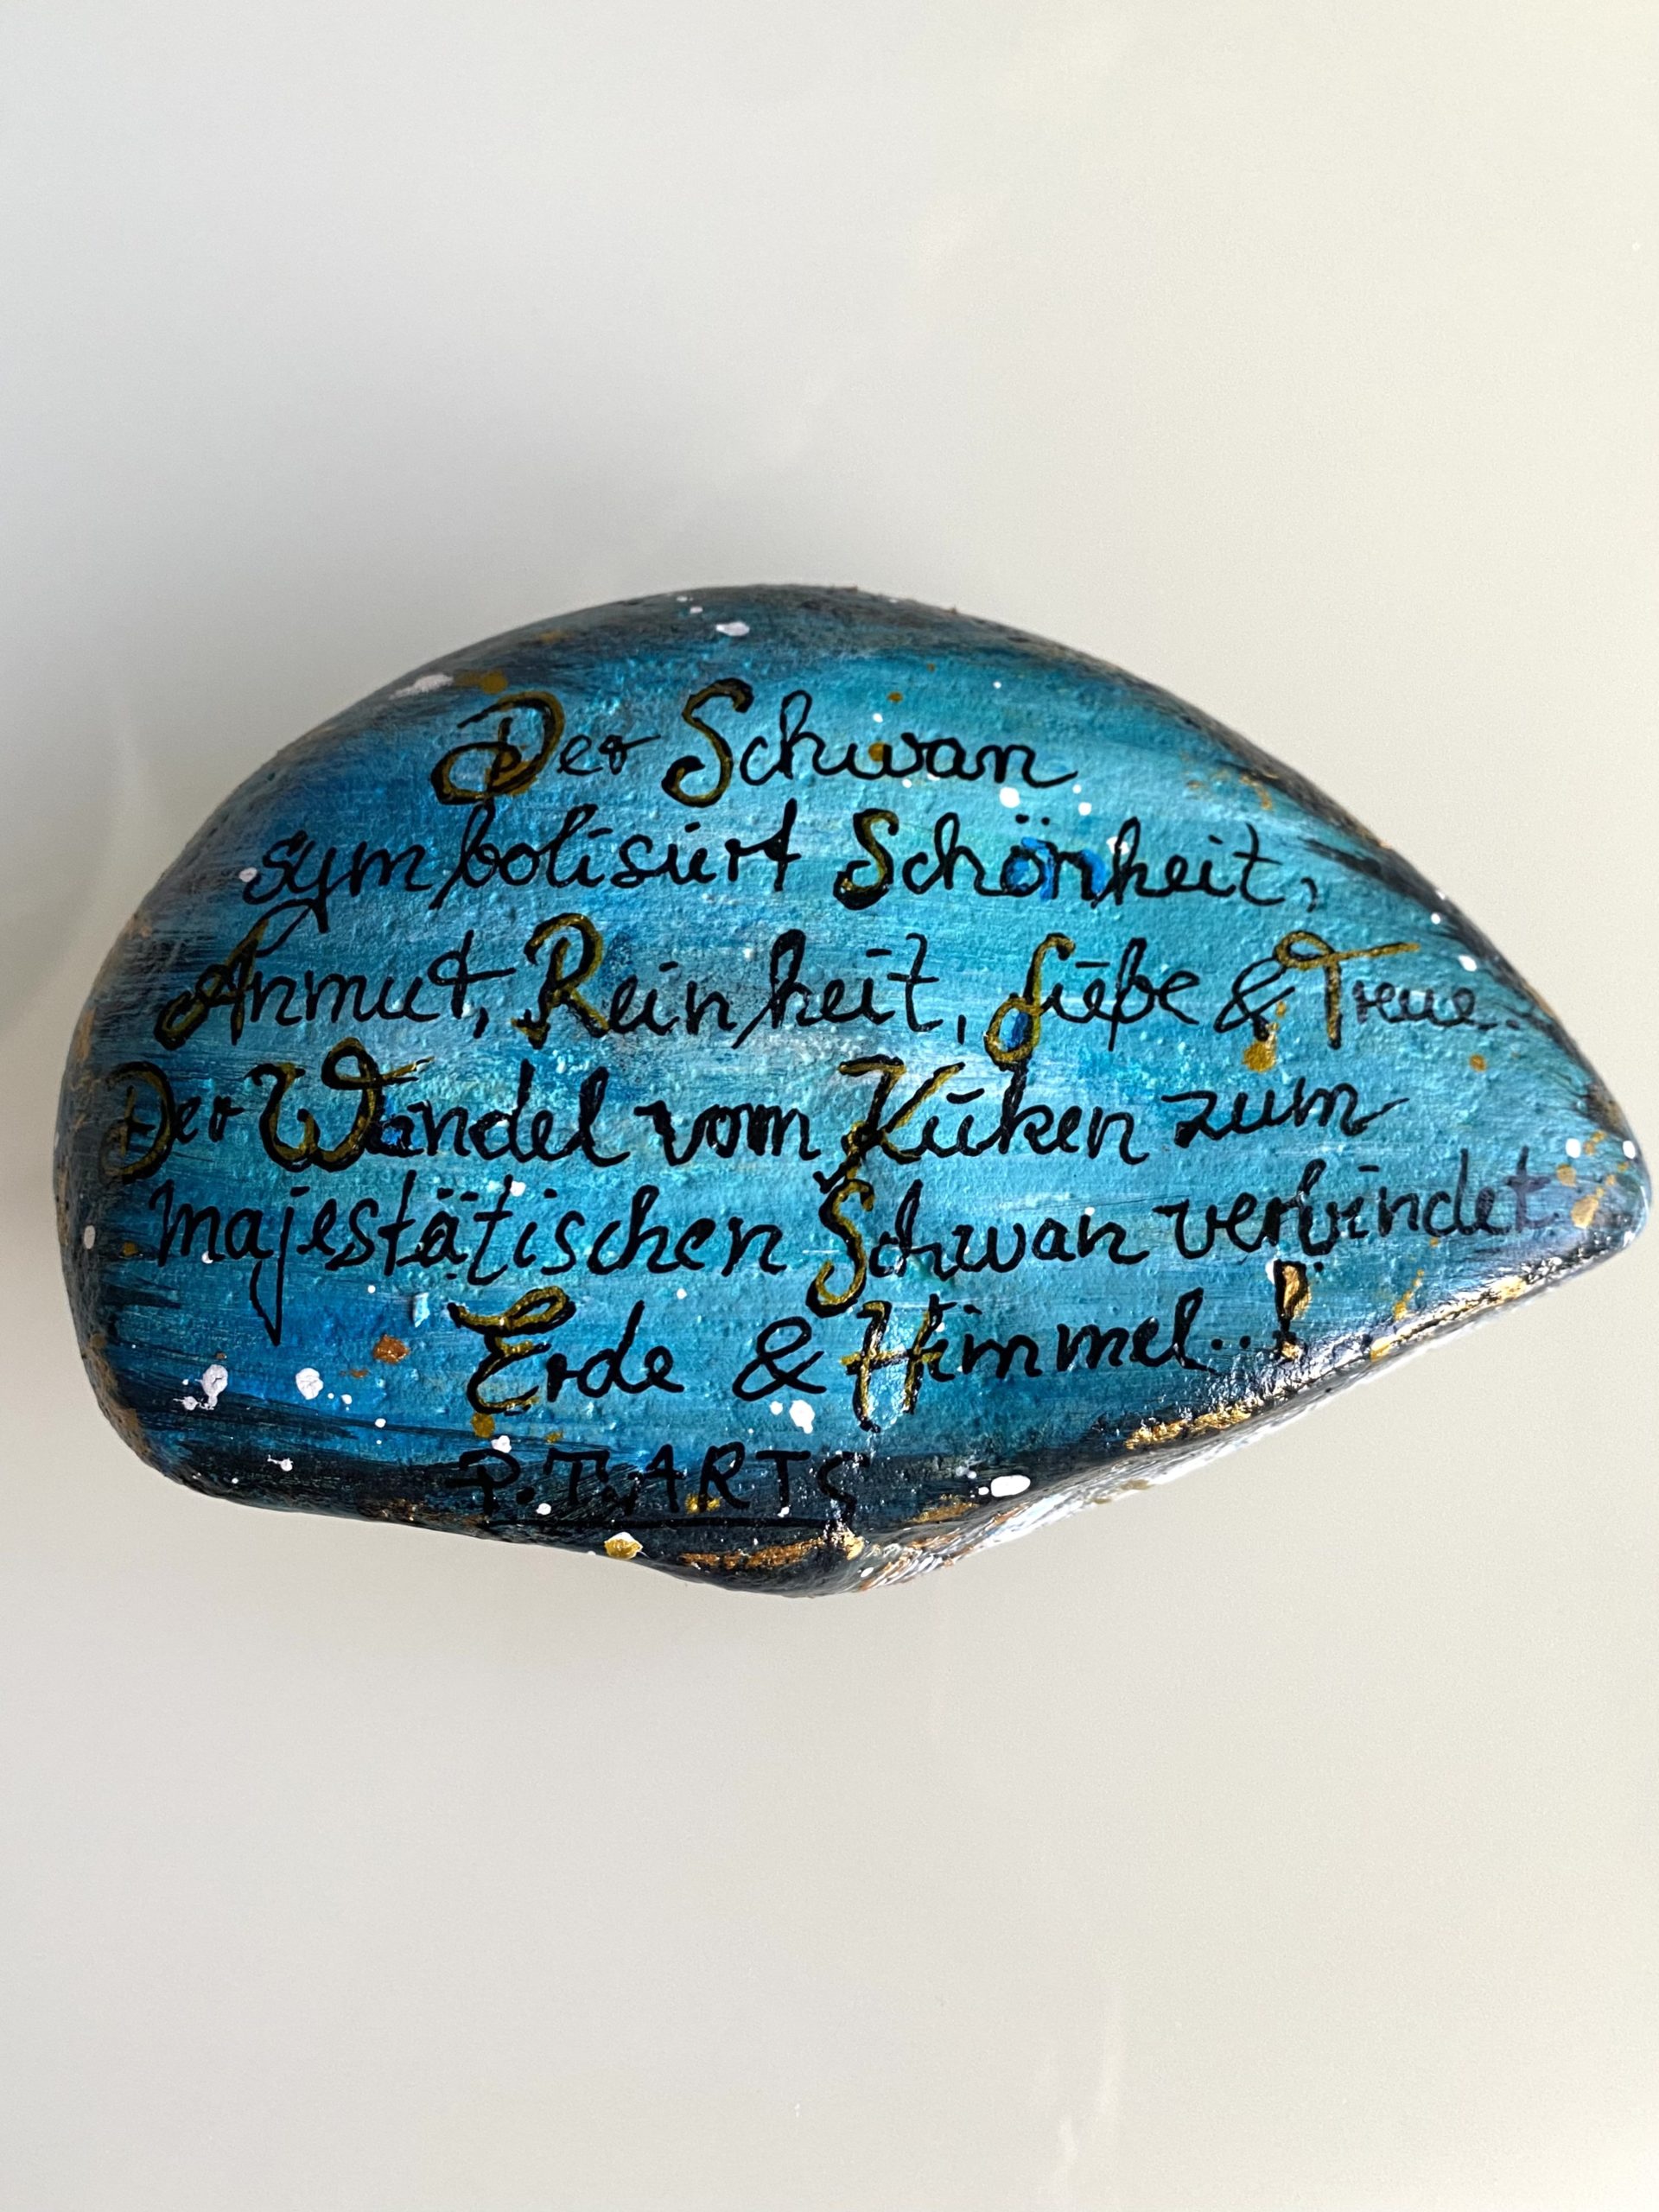 Der Schwan
symbolisiert Schönheit,
Anmut, Reinheit, Liebe & Treue.
Der Wandel vom Küken zum
majestätischen Schwan verbindet
Erde & Himmel..!
P.T.ARTS